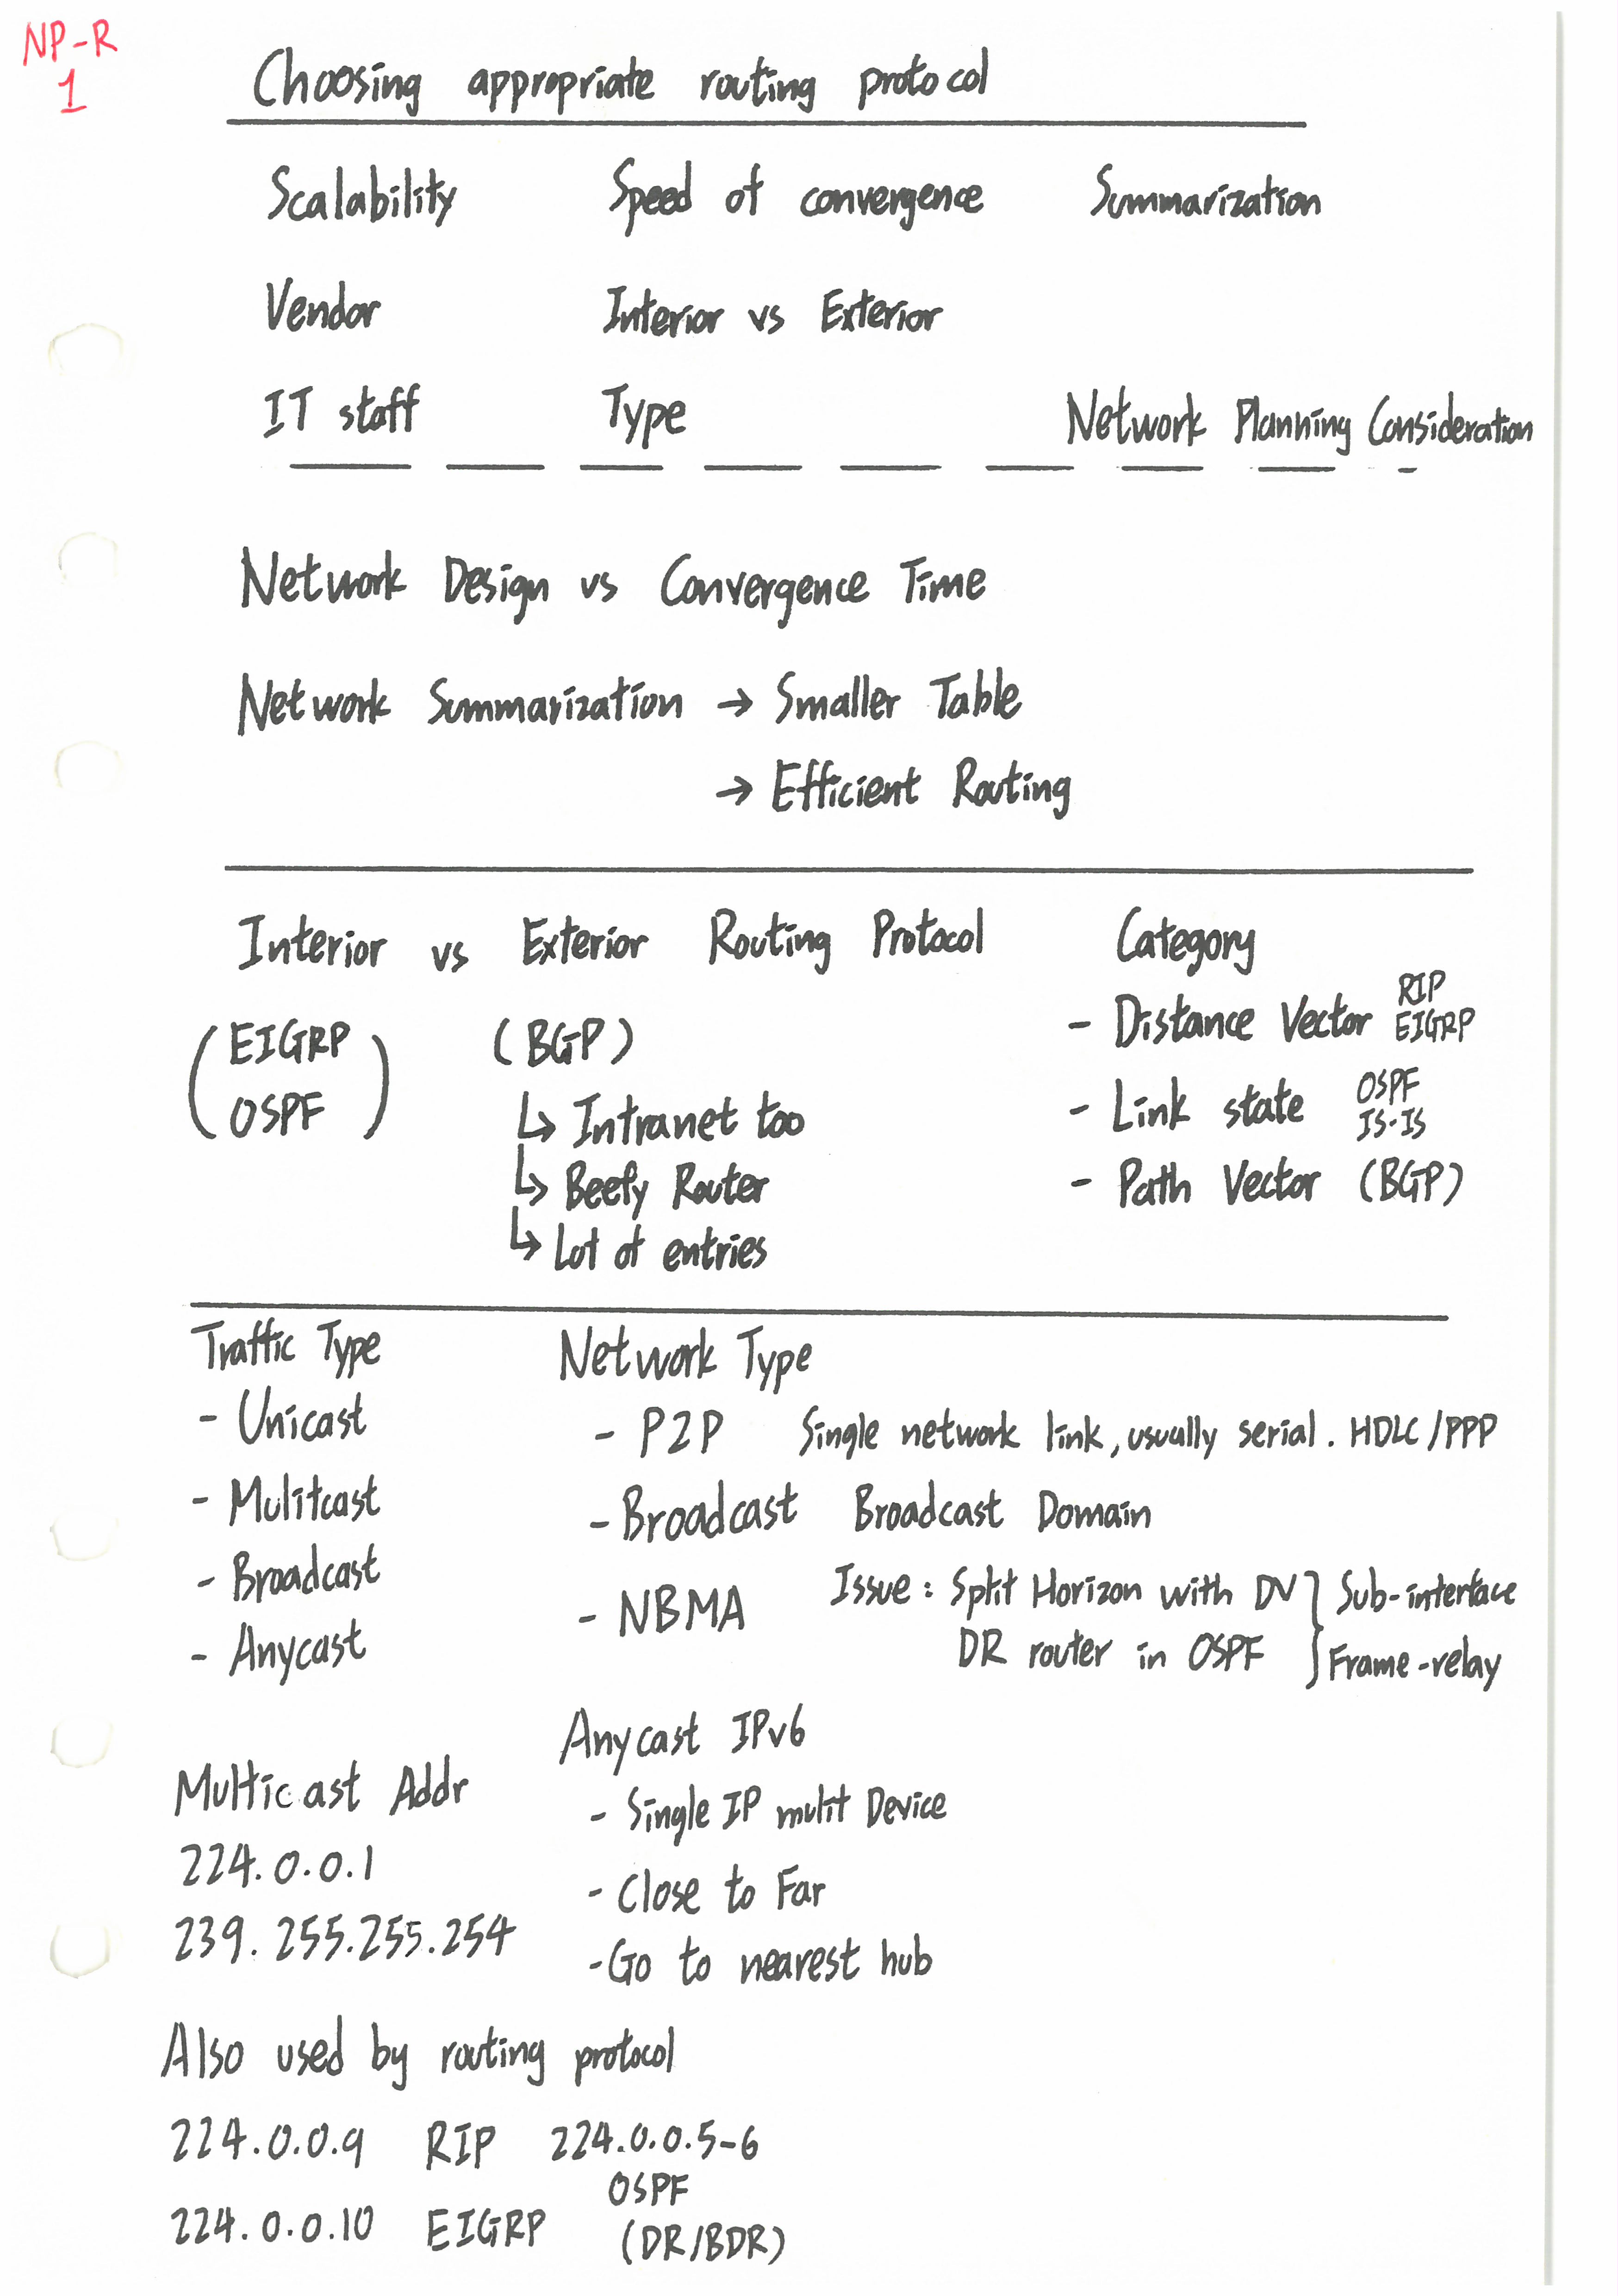 NP-R
1
Choosing appropriate routing protocol
Scalability Speed of convergence Summarization
Vendor Interior vs Exterior
IT staff Type Network Planning Consideration
Network Design vs Convergence Time
Network Summarization → Smaller Table
→ Efficient Routing
Interior vs Exterior Routing Protocol
(EIGRP
OSPF)
(BGP)
↳ Intranet too
↳ Beefy Router
↳ Lot of entries
Category
- Distance Vector RIP
EIGRP
- Link state OSPF
IS-IS
- Path Vector (BGP)
Traffic Type
- Unicast
- Mulitcast
- Broadcast
- Anycast
Network Type
- P2P Single network link, usually serial. HDLC/PPP
- Broadcast Broadcast Domain
- NBMA Issue: Split Horizon with DV } Sub-interface
DR router in OSPF } Frame-relay
Multicast Addr
224.0.0.1
239.255.255.254
Anycast IPv6
- Single IP mulit Device
- Close to Far
- Go to nearest hub
Also used by routing protocol
224.0.0.9 RIP 224.0.0.5-6
OSPF
224.0.0.10 EIGRP (DR/BDR)